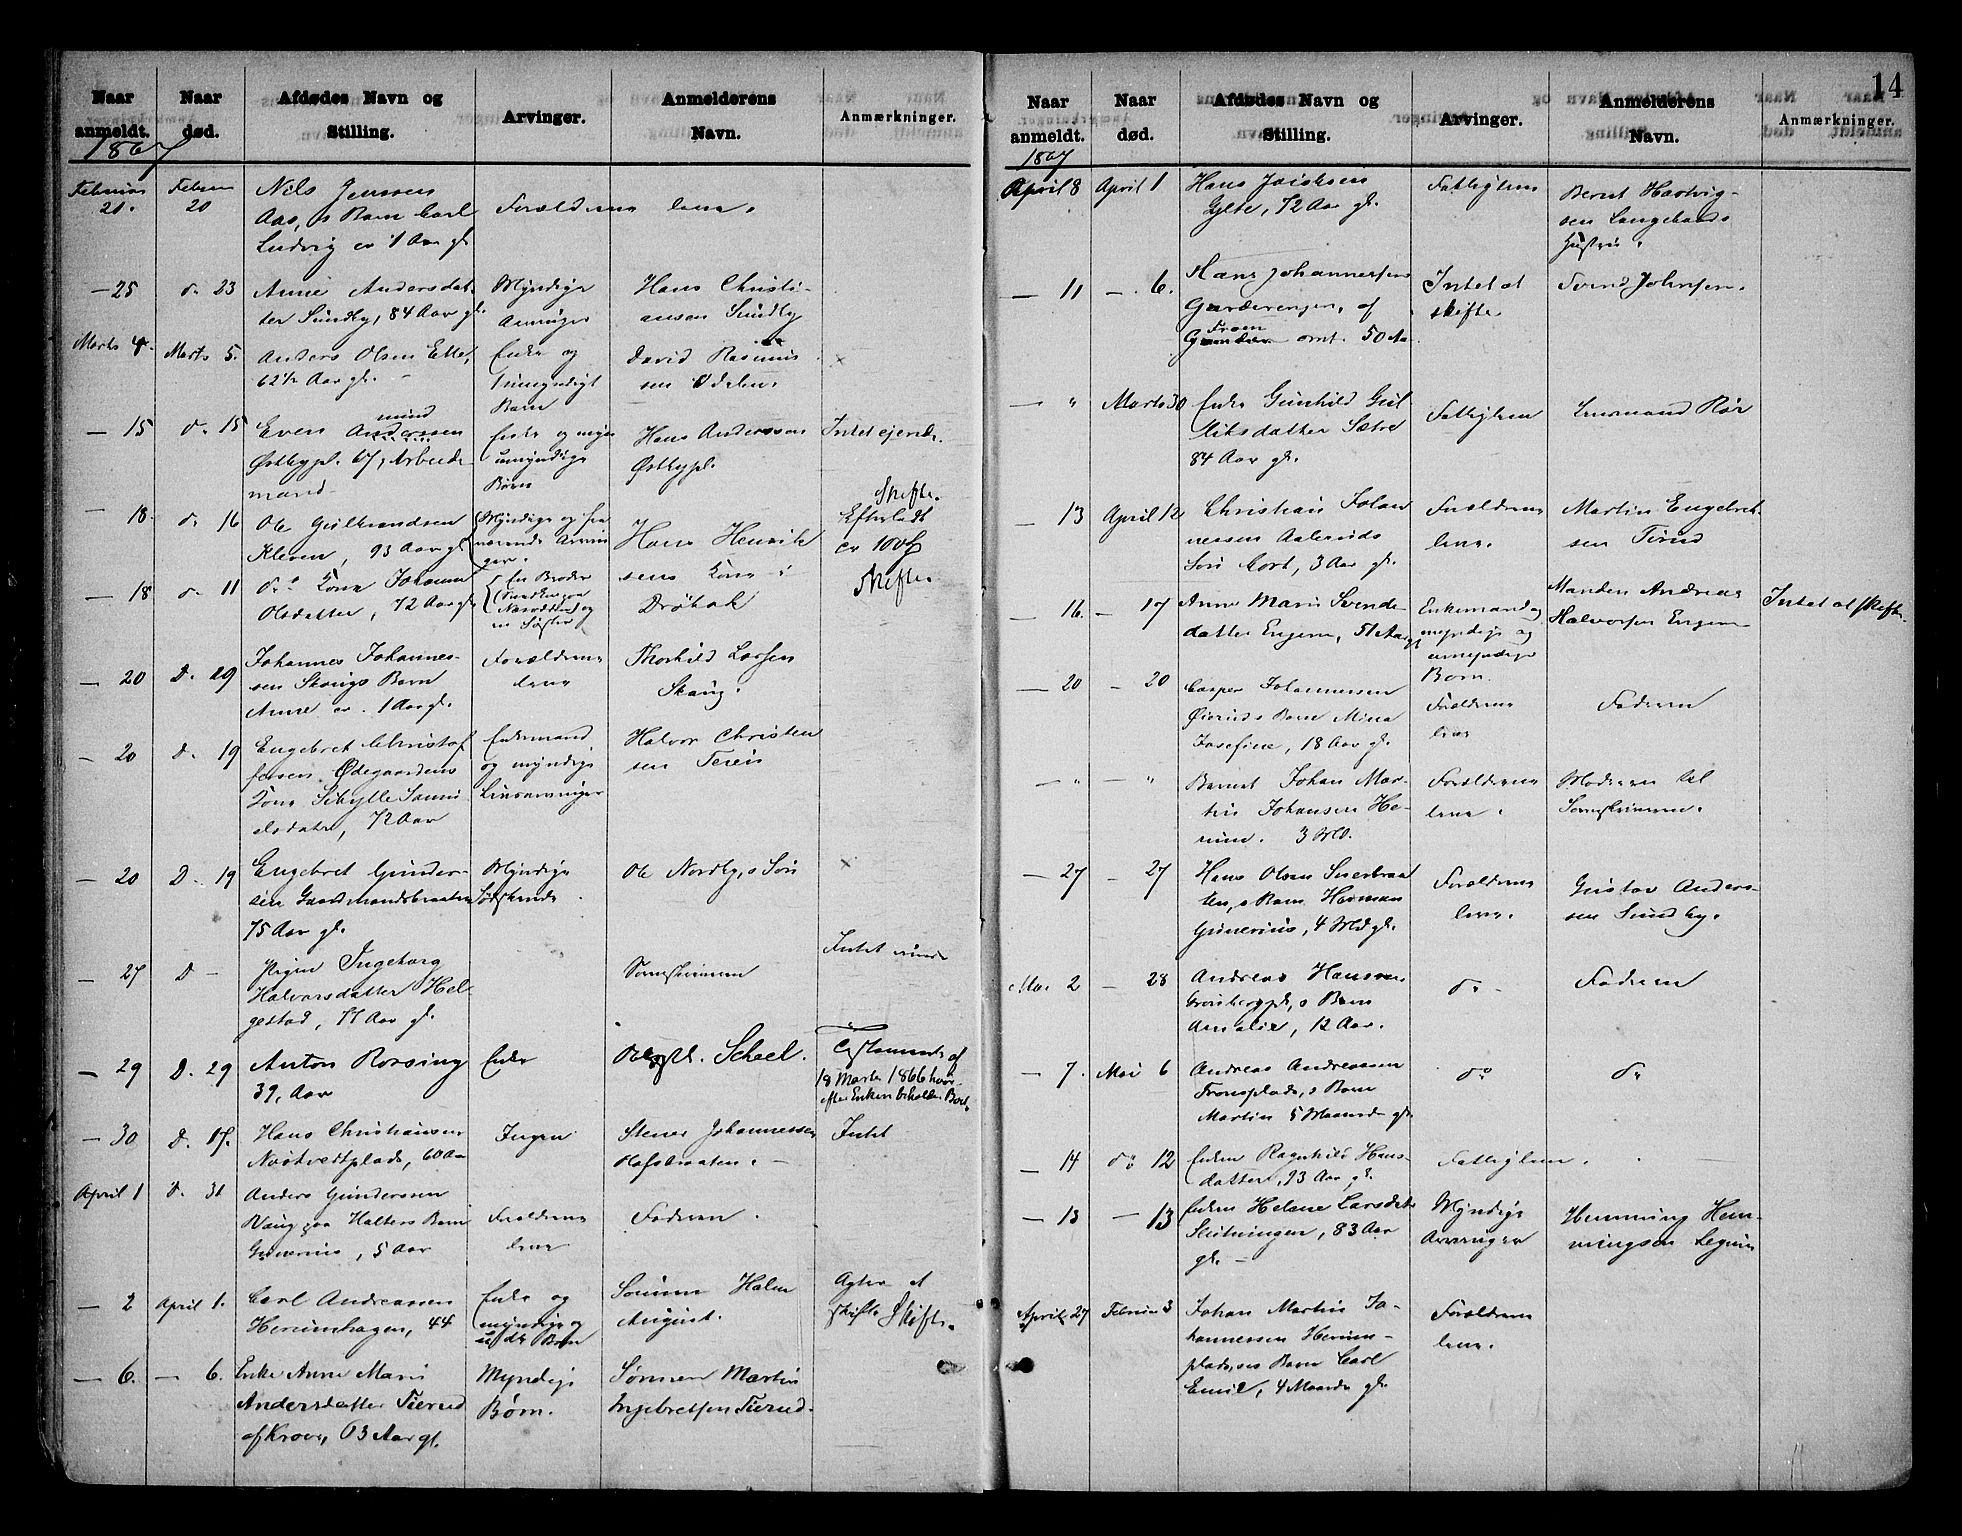 Naar anmeldt. Naar død. Afdødes Navn og Stilling. Arvinger. Anmelderens Navn. Anmærkninger.
1867
Februar 21. Februar 20
Nils Jenssen
Aas, s Barn Carl
Ludvig er 1 Aar gl
Forældrene lever.
— 25 d. 23
Anne Andersdat-
ter Sundby, 84 Aar gl.
Myndige
Arvinger
Hans Christi-
ansen Sundby
Marts 4. Marts 5.
Anders Olsen
62½ Aar gl. —
Enke og
1 umyndigt
Barn
David Rasmus
sen
×
— 15 d. 15
Even Anderssen
mund
Østbypl. 67, Arbeids
mand
Enke og
umyndige
Børn
Hans Anderssen
Østbypl.
Intet eiende.
— 18. d. 16
Ole Gulbrandsen
Kleven, 93 Aar gl
Myndige og fra
værende Arvin
ger.
Hans Henrik
sens Kone i
Drøbak
Skifte.
Efterladt
ca 100
— 18 d. 11
do Kone Johanne
Olsdatter, 72 Aar gl
En Broder
og
en Søster
Skifte.
— 20 D. 29
Johannes Johannes-
sen Skougs Barn
Anne er 1 Aar gl.
Forældrene
leve
Thorkild Larsen
Skoug.
— 20 D. 19
Engebret Christof
fersen Ødegaardens
Kone Sibylle Samu
elsdatr, 72 Aar
Enkemand
og myndige
Livsarvinger
Halvor Christen
sen
— 20 D. 19
Engebret Gunder-
sen Gaardmandsbraaten
75 Aar gl.
Myndige
Sødskende.
Ole Nordby, s Søn
×
— 27 D —
Pigen Ingeborg
Halvorsdatter Hel-
gestad, 77 Aar gl.
Sogneskriveren
Intet
— 29 D. 29
Anton Rorsing
39, Aar
Enke
Scheel.
Testamente af
18 Marts 1866 hvor-
efter Enken beholder Boet.
— 30 D. 17.
Hans Christiansen
Nøstvedtplads, 60 Aar
Ingen
Stener Johannessen
Hafsbraaten. —
Intet
April 1 d. 31
Anders Gunderssen
Vaug paa Halters Barn
Gunerius, 5 Aar
Forældrene
leve
Faderen.
— 2 April 1.
Carl Andreassen
Herumhagen, 44
Enke og
myndige og
Børn
Holm
August.
Agter at
skifte Skifte.
— 6. — 6.
Enke Anne Marie
Andersdatter Tierud
af Kroer, 63 Aar gl.
Myndige
Børn.
Martin
Ingebretsen Tierud.
14
Naar anmeldt. Naar død. Afdødes Navn og Stilling. Arvinger. Anmelderens Navn. Anmærkninger.
1867
April 8 April 1
Hans Jacobsen
Gylte, 72 Aar gl.
Fattiglem
Bernt Hartvig-
sen Langebaads
Hustru.
— 11 — 6.
Hans Johannersen
Garderengen, af
Froen
omt. 50 Aar
Intet at
skifte
Svend Johnsen.
— " Marts 30
Enke Gunhild Gul
liksdatter Sætre
84 Aar gl.
Fattiglem
Lensmand Rør
— 13 April 12
Christian Johan
nessen Aaleruds
Søn Cort, 3 Aar gl.
Forældrene
leve.
Martin Engebret
sen Tirud
— 16. — 17
Anne Marie Svends-
datter Engene, 51 Aar gl
Enkemand og
myndige og
umyndige
Børn.
Manden Andreas
Halvorsen Engene
Intet at skifte.
— 20 — 20
Casper Johannessen
Øieruds Barn Mina
Josefine, 18 Aar gl.
Forældrene
leve
Faderen
— " — "
Barnet Johan Mar-
tin Johansen He-
rum. 3 Md.
Forældrene
leve.
Moderen til
Sogneskriveren.
— 27 — 27
Hans Olsen Sneerbraa
ten, s Barn Herman
Gunerius, 4 Md gl.
Forældrene
leve.
Gustav Anders-
sen Sundby.
Mai 2 — 28
Andreas Hanssen
Grønbergpl, s Barn
Amalie, 12 Aar.
do —
Faderen
— 7. Mai 6
Andreas Andreassen
Fronsplads, s Barn
Martin 5 Maaneder gl.
do
do
— 14 do 12
Enken Ragnhild Hans-
datter, 93 Aar gl.
Fattiglem.
— 15 — 13
Enken Helene Larsdatr
Slutningen, 83 Aar
gl. —
Myndige
Arvinger
Henning Hen-
ningsen
April 27 Februar 3
Johan Martin Jo-
hannessen Herum-
plads, es Barn Carl
Emil, 4 Maander gl.
Forældrene
leve.